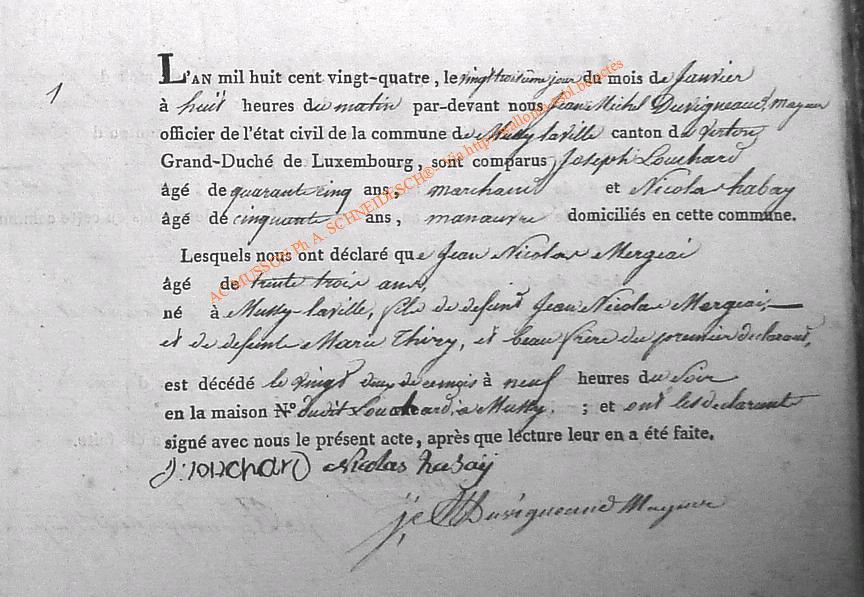 1
L'AN mil huit cent vingt-quatre, le vingt troisième jour du mois de Janvier
à huit heures du matin par-devant nous Jean Michel Duvigneaud, mayeur
officier de l'état civil de la commune de Mussy-laville canton de Virton
Grand-Duché de Luxembourg, sont comparus Joseph Louchard
âgé de quarante cinq ans, marchand et Nicolas habay
âgé de cinquante ans, manœuvre domiciliés en cette commune.
Lesquels nous ont déclaré que Jean Nicolas Mergeai
âgé de trente trois ans,
né à Mussy-laville, fils de defunt Jean Nicolas Mergeai,
et de defunte Marie Thiry, et beau frère du premier declarant,
est décédé le vingt deux de ce mois à neuf heures du soir
en la maison N° dudit Louchard, à Mussy. ; et ont les declarants
signé avec nous le présent acte, après que lecture leur en a été faite.
J: louchard Nicolas habaÿ
Duvigneaud Mayeur
ACMUSSON Ph A. SCHNEIDESCH®© Via http